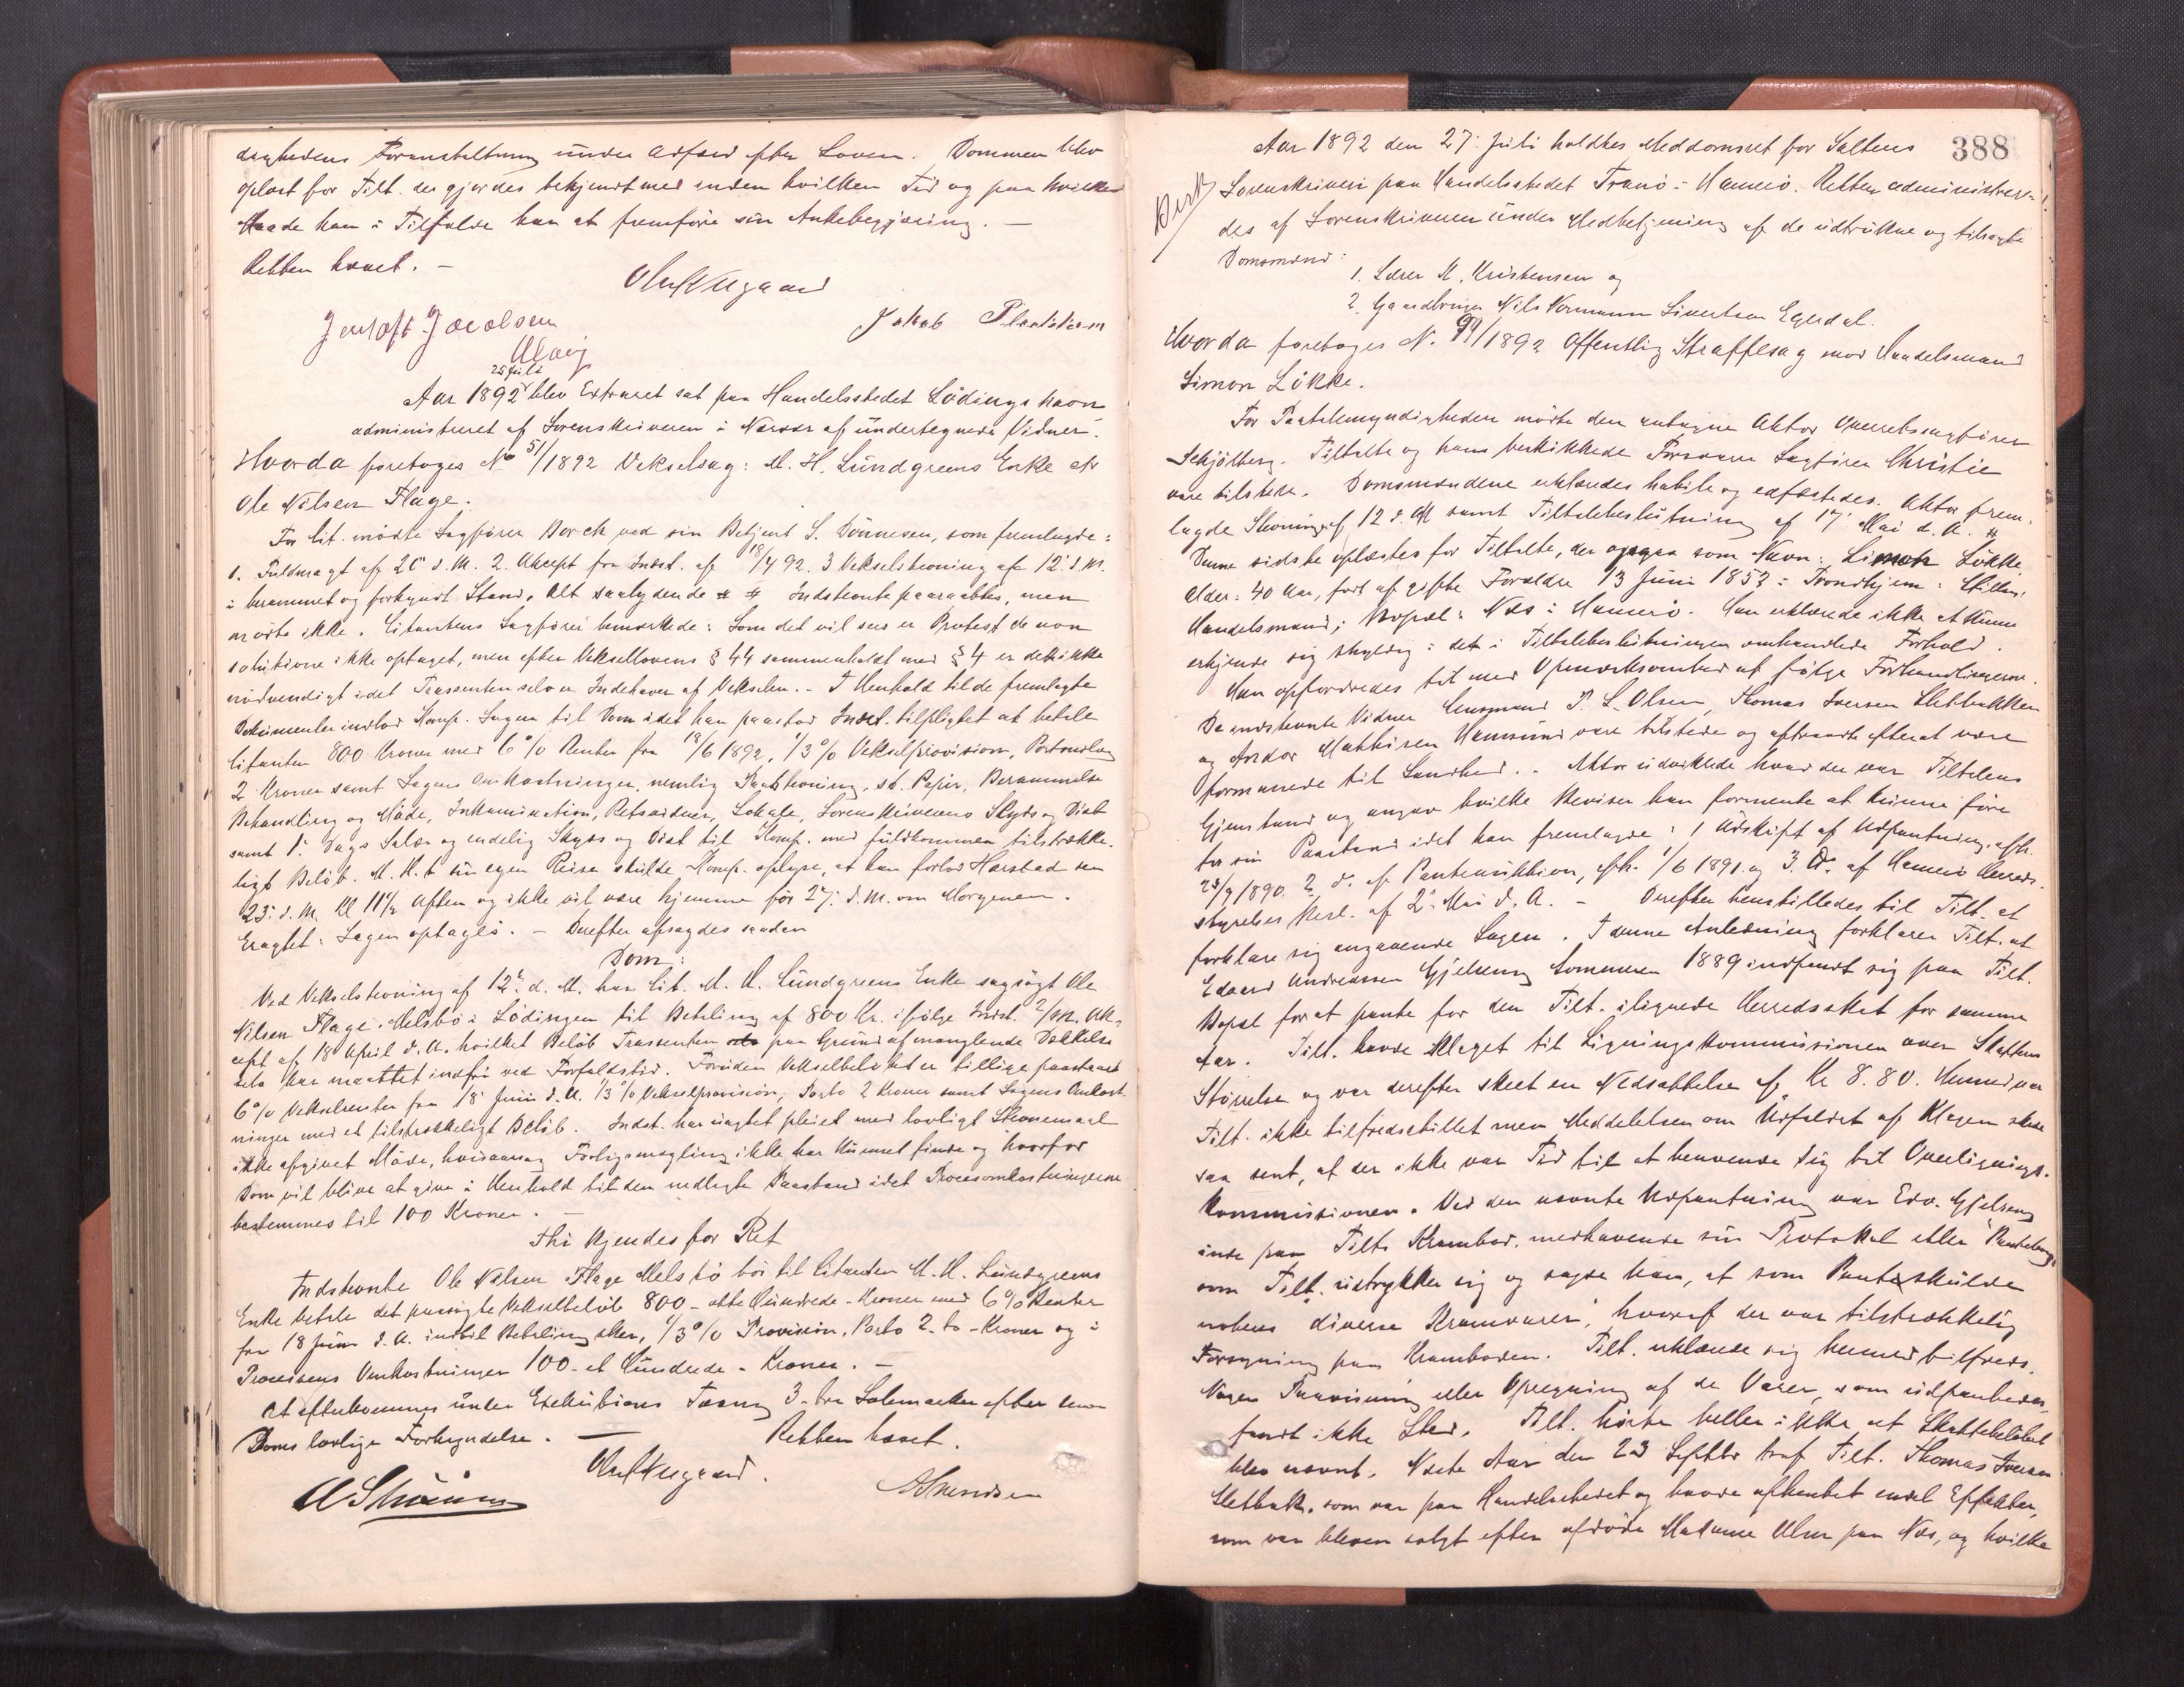 dighedens Foranstaltning under Adfærd efter Loven. Dommen blev
oplæst for Tilt. der gjordes bekjendt med inden hvilken Tid og paa hvilken
Maade han i Tilfælde har at fremføre sin Ankebegjæring. —
Retten hævet. —
Jakob
Aar 1892 25 Juli blev Extraret sat paa Handelsstedet Lødingshavn
administreret af Sorenskriveren i Nærvær af undertegnede Vidner.
Hvorda foretoges No 51/1892 Vekselsag: M. H. Lundgreens Enke ctr
Ole Nilsen Flage.
For Cit. mødte Sagfører Borch ved sin Betjent S. Tønnesen, som fremlagde:
1. Fuldmagt af 20 d. M. 2. Aksept fra Indst. af 18/4 92. 3 Vekselstevning af 12. d. M.
i berammet og forkyndt Stand. Alt saalydende Indstevnte paaraabtes, men
mødte ikke. Citantens Sagfører bemærkede: Som det vil sees er Protest de non
solutione ikke optaget, men efter Veksellovens § 44 sammenholdt med § 4 er det ikke
nødvendigt idet Trassenten selv er Indehaver af Vekselen. - I Henhold til de fremlagte
Dokumenter indlod Komp. Sagen til Dom idet han paastod Indst. tilpligtet at betale
Citanten 800 Kroner med 6 % Renter fra 18/6 1892, 1/3 % Vekselprovision, Portoudlæg
2 Kroner samt Sagens Omkostninger, nemlig stevning, st. Papir, Berammelse
Behandling og Møde, Inkamination, Retsvidner, Lokale, Sorenskriverens Skyds og Diæt
samt 1 Dags Salær og endelig Skyds og Diæt til Komp. med fuldkommen tilstrække-
ligt Beløb. M. H. t. sin egen Reise skulde Komp. oplyse, at han forlod Harstad den
23. d. M. Kl 11½ Aften og ikke vil være hjemme før 27. d. M. om Morgenen.
Eragtet: Sagen optages. - Derefter afsagdes saadan
Dom:
Ved Vekselstevning af 12. d. M. har Cit. M. H. Lundgreens Enke sagsøgt Ole
Nilsen Flage, Melsbø i Lødingen til Betaling af 800 Kr. ifølge Indst. Ak-
cept af 18 April d. A. hvilket Beløb Trassenten paa Grund af manglende Dækkelse
selv har maattet indfri ved Forfaldstid. Foruden Vekselbeløbet er tillige paastaaet
6 % Vekselrenter fra 18 Juni d. A. 1/3 % Vekselprovision, Porto 2 Kroner samt Sagens Omkost-
ninger med et tilstrækkeligt Beløb. Indst. har uagtet pleiet med lovligt Stevnemaal
ikke afgivet Møde, hvisaarsag Forligsmægling ikke har kunnet finde og hvorfor
Dom vil blive at give i Henhold til den nedlagte Paastand idet Procesomkostningerne
bestemmes til 100 Kroner.
Thi kjendes for Ret
Indstevnte Ole Nilsen Flage Melsbø bør til Citanten M. H. Lundgreens
Enke betale det paasøgte Vekselbeløb 800 - otte Hundrede - Kroner med 6 % Renter
fra 18 Juni d. A. indtil Betaling sker, 1/3 % Provision, Porto 2 - to - Kroner og i
Processens Omkostninger 100 - et Hundrede - Kroner. —
At efterkommes under Exekutions Tvang 3 - tre Solemærker efter denne
Doms lovlige Forkyndelse. — Retten hævet.
388
Aar 1892 den 27. Juli holdtes Meddomsret for Saltens
Sorenskriveri paa Handelsstedet Tranø i Hamerø. Retten administrere-
des af Sorenskriveren under Medbetjening af de udtrukne og tilsagte
Domsmænd:
1. Lærer M. Kristensen og
2. Gaardbruger Nils Normann Sivertsen Egerdal.
Hvorda foretoges N. 99/1892 Offentlig Straffesag mod Handelsmand
Simon Løkke.
For Paatalemyndigheden mødte den antagne Aktor Overretssagfører
Schjølberg. Tiltalte og hans beskikkede Forsvarer Sagfører Christie
vare tilstede. Domsmændene erklæredes habile og edfæstedes. Aktor frem-
lagde Stevning af 12 d. M samt Tiltalebeslutning af 17 Mai d. A.
Denne sidste oplæstes for Tiltalte, der opgav som Navn: Simon Løkke
Alder: 40 Aar, født af gifte Forældre 13 Juni 1852 i Trondhjem: Stilling:
Handelsmand; Bopæl: Næs i Hamerø. Han erklærede ikke at kunne
erkjende sig skyldig i det i Tiltalebeslutningen omhandlede Forhold.
Han opfordredes til med Opmærksomhed at følge Forhandlingerne.
De indstevnte Vidner Lensmand P. L. Olsen, Thomas Iversen Sletbakken
og Andor Mathisen Hamsund vare tilstede og aftraadte efterat være
formanede til Sandhed. - Aktor udviklede hvad der var Tiltalens
Gjenstand og angav hvilke Beviser han formente at kunne føre
for sin Paastand idet han fremlagde: 1 Udskrift af Udpantning, afh.
23/9 1890. 2 do. af Panteauktion, afh. 1/6 1891 og 3. Do. af Hamerø Herreds-
styrelses Besl. af 2. Mai d. A. - Derefter henstilledes til Tilt. at
forklare sig angaaende Sagen. I denne Anledning forklarer Tilt. at
Edvard Andreassen Gjelseng Sommeren 1889 indfandt sig paa Tilt.
Bopæl for at pante for den Tilt. ilignede Herredsskat for samme
Aar. Tilt. havde klaget til Ligningskommissionen over Skattens
Størrelse og var derefter skeet en Nedsættelse af Kr 8.80. Hermed var
Tilt. ikke tilfredsstillet men Meddelelsen om Udfaldet af Klagen skede
saa sent, at der ikke var Tid til at henvende sig til Overlignings-
kommissionen. Ved den nævnte Udpantning var Edv. Gjelseng
inde paa Tilts Krambod, medhavende sin Protokol eller "Pantebog"
som Tilt. udtrykker sig og sagde han, at som Pant skulde
noteres "diverse Kramvarer", hvoraf der var tilstrækkelig
Forsyning paa Kramboden. Tilt. erklærede sig hermed tilfreds.
Nogen Paavisning eller Opregning af de Varer, som udpantedes,
fandt ikke Sted. Tilt. hørte heller ikke at Skattebeløbet
blev nævnt. Næste Aar den 23 Septbr traf Tilt. Thomas Iversen
Sletbak, som var paa Handelsstedet og havde afhentet endel Effekter,
som var bleven solgt efter afdøde Madame paa Næs, og hvilke